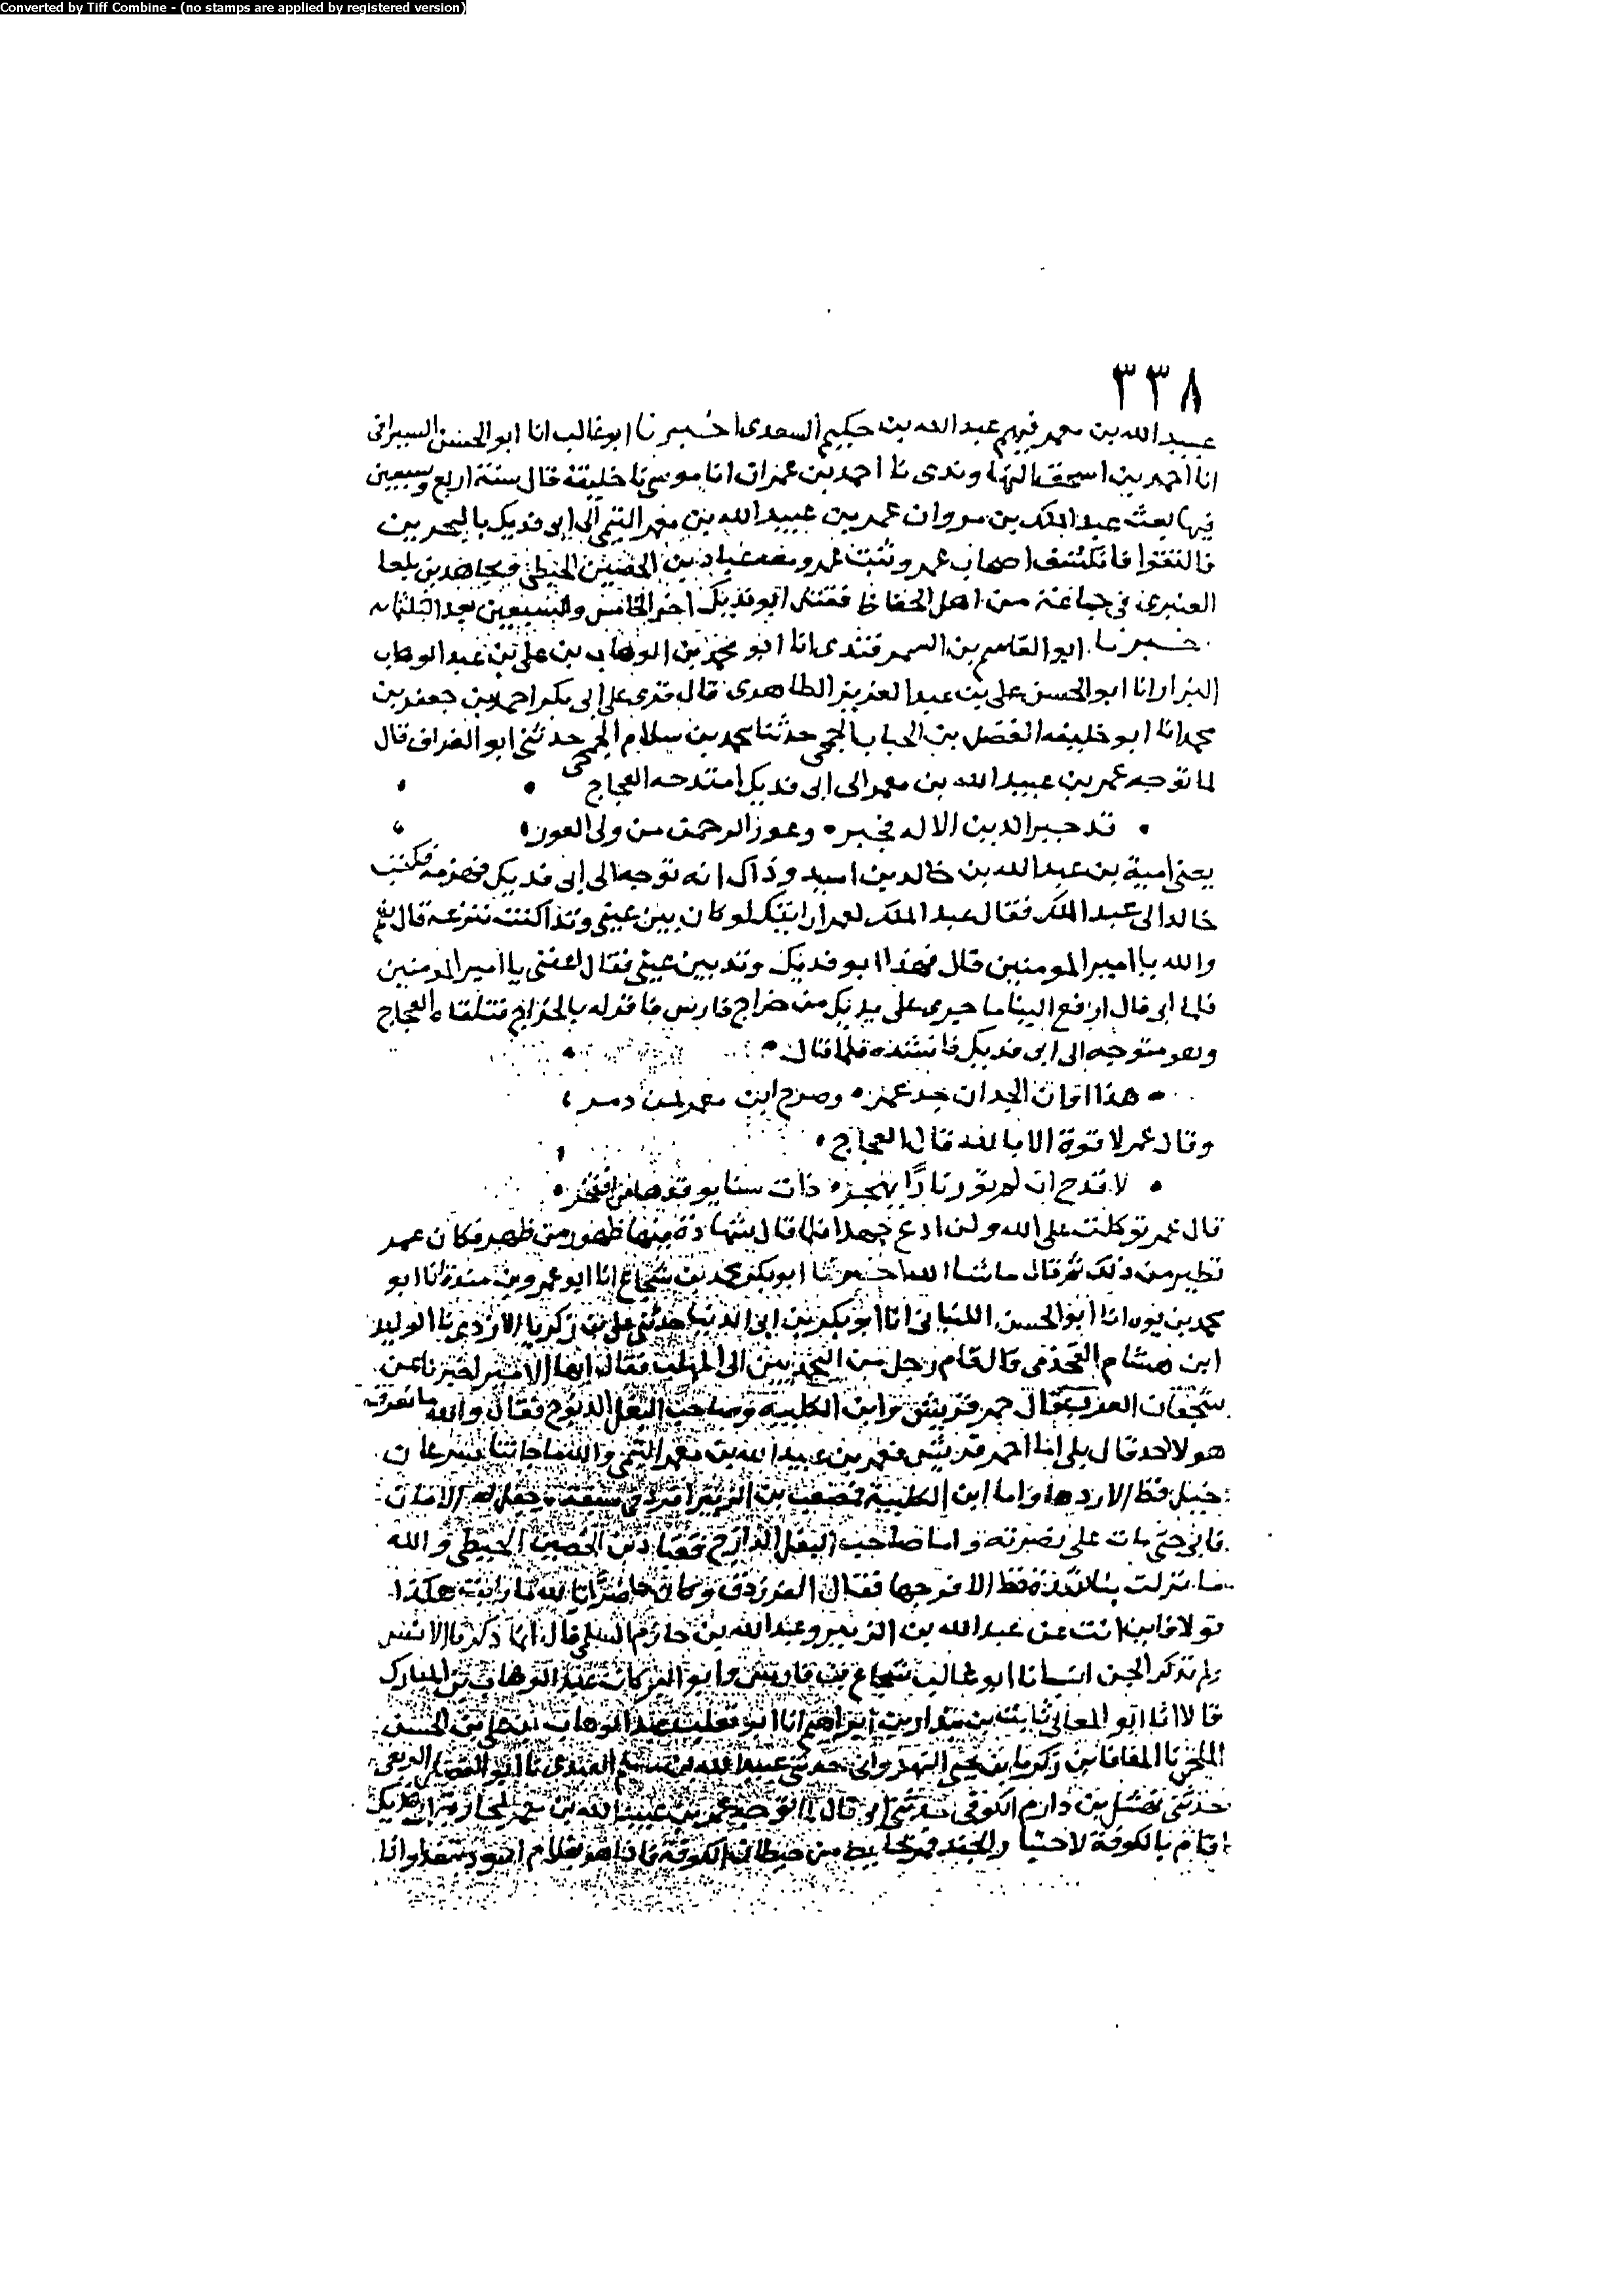 Converted by Tiff Combine - (no stamps are applied by registered version)
٣٣٨
عبيد الله بن معمر فيهم عبد الله بن حكيم السعدي اخبرنا ابو غالب انا ابو الحسن السيرافي
انا احمد بن اسحق النهاوندي نا احمد بن عمران انا موسى نا خليفة قال سنة اربع وسبعين
فيها بعث عبد الملك بن مروان عمر بن عبيد الله بن معمر التيمي الى ابي فديك بالبحرين
فالتقوا فانكشف اصحاب عمر وثبت عمر ومعه عباد بن الحصين الحبطي ومجاهد بن بلعا
العنبري في جماعة من اهل الحفاظ فقتل ابو فديك اخر الخامس والسبعين بعد الثلثمايه
خبرنا ابو القاسم بن السمرقندي انا ابو محمد بن الوهاب بن علي بن عبد الوهاب
البزار انا ابو الحسن علي بن عبد العزيز الطاهري قال قرى على ابي بكر احمد بن جعفر بن
محمد انا ابو خليفه الفضل بن الحباب الجمحي حدثنا محمد بن سلام الجمحي حدثني ابو الغراف قال
لما توجه عمر بن عبيد الله بن معمر الى ابي فديك امتدحه العجاج
قد جبر الدين الاله فجبر وعور الرحمن من ولى العور
يعني امية بن عبد الله بن خالد بن اسيد وذاك انه توجه الى ابي فديك فهزمه فكتب
خالد الى عبد الملك فقال عبد الملك لعمر ارايتك لو كان بين عيني وتد اكنت تنزعه قال نعم
والله يا امير المومنين قال فهذا ابو فديك وتد بين عيني فقال اعفني يا امير المومنين
فلما ابى قال ارفع الينا ما جرى على يديك من خراج فارس فاقر له بالخراج فتلقاه العجاج
وهو متوجه الى ابي فديك فانشده فلما قال
هذا اوان الجد ان جد عمر وصرح ابن معمر لمن دمر
وقال عمر لا قوة الا بالله قال العجاج
لا قدح ان لم تور نارًا بهجر ذات سنا يوقدها من افتخر
قال عمر توكلت على الله ولن ادع جهدا فلما قال شهادة فيها ظهور من ظهر فكان عمر
تطير من ذلك ثم قال ما شا الله اخبرنا ابو بكر محمد بن شجاع انا ابو عمرو بن مندة انا ابو
محمد بن يوه انا ابو الحسن اللنباني انا ابو بكر بن ابي الدنيا حدثني علي بن زكريا الازدي نا الوليد
ابن هشام القحذمي قال قام رجل من الى المهلب فقال ايها الامير اخبرنا عن
شجعان العرب قال احمر قريش وابن الكلبية وصاحب البغل فقال والله ما نعرف
هولا احد قال بلى اما احمر قريش فعمر بن عبيد الله بن معمر التيمي والله ما جاتنا سرعان
خيل قط الا ردها واما ابن الكلبية فمصعب بن الزبير افرد في سبعة وجعل له الامان
فابى حتى مات على بصيرته واما صاحب البغل فعباد بن الحصين الحبطي والله
ما نزلت بنا شدة قط الا فرجها فقال الفرزدق وكان حاضرًا تالله ما رايت هكذا
قولا فاين انت عن عبد الله بن الزبير وعبد الله بن خازم السلمي قال انما ذكرنا الانس
ولم نذكر الجن انبانا ابو غالب شجاع بن فارس وابو البركات عبد الوهاب بن المبارك
قالا انا ابو المعالي ثابت بن بندار بن ابراهيم انا ابو تغلب عبد الوهاب بن علي بن الحسن
الملحمي نا المعافا بن زكريا بن يحيى النهرواني حدثني عبيد الله بن مسلم العبدي نا ابو الفضل الربعي
حدثني نهشل بن دارم الكوفي حدثني ابي قال لما توجه عمر بن عبيد الله بن معمر لمحاربة ابي فديك
اقام بالكوفة والجند فمر بحايط من حيطان الكوفة فاذا هو بغلام اسود